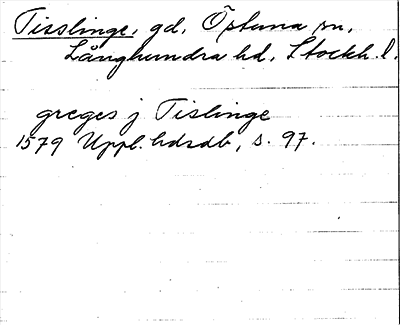 Tisslinge, gd, Östuna sn,
Långhundra hd, Stockh. l.
greges j Tislinge
1579 Uppl. hdrdb, s. 97.